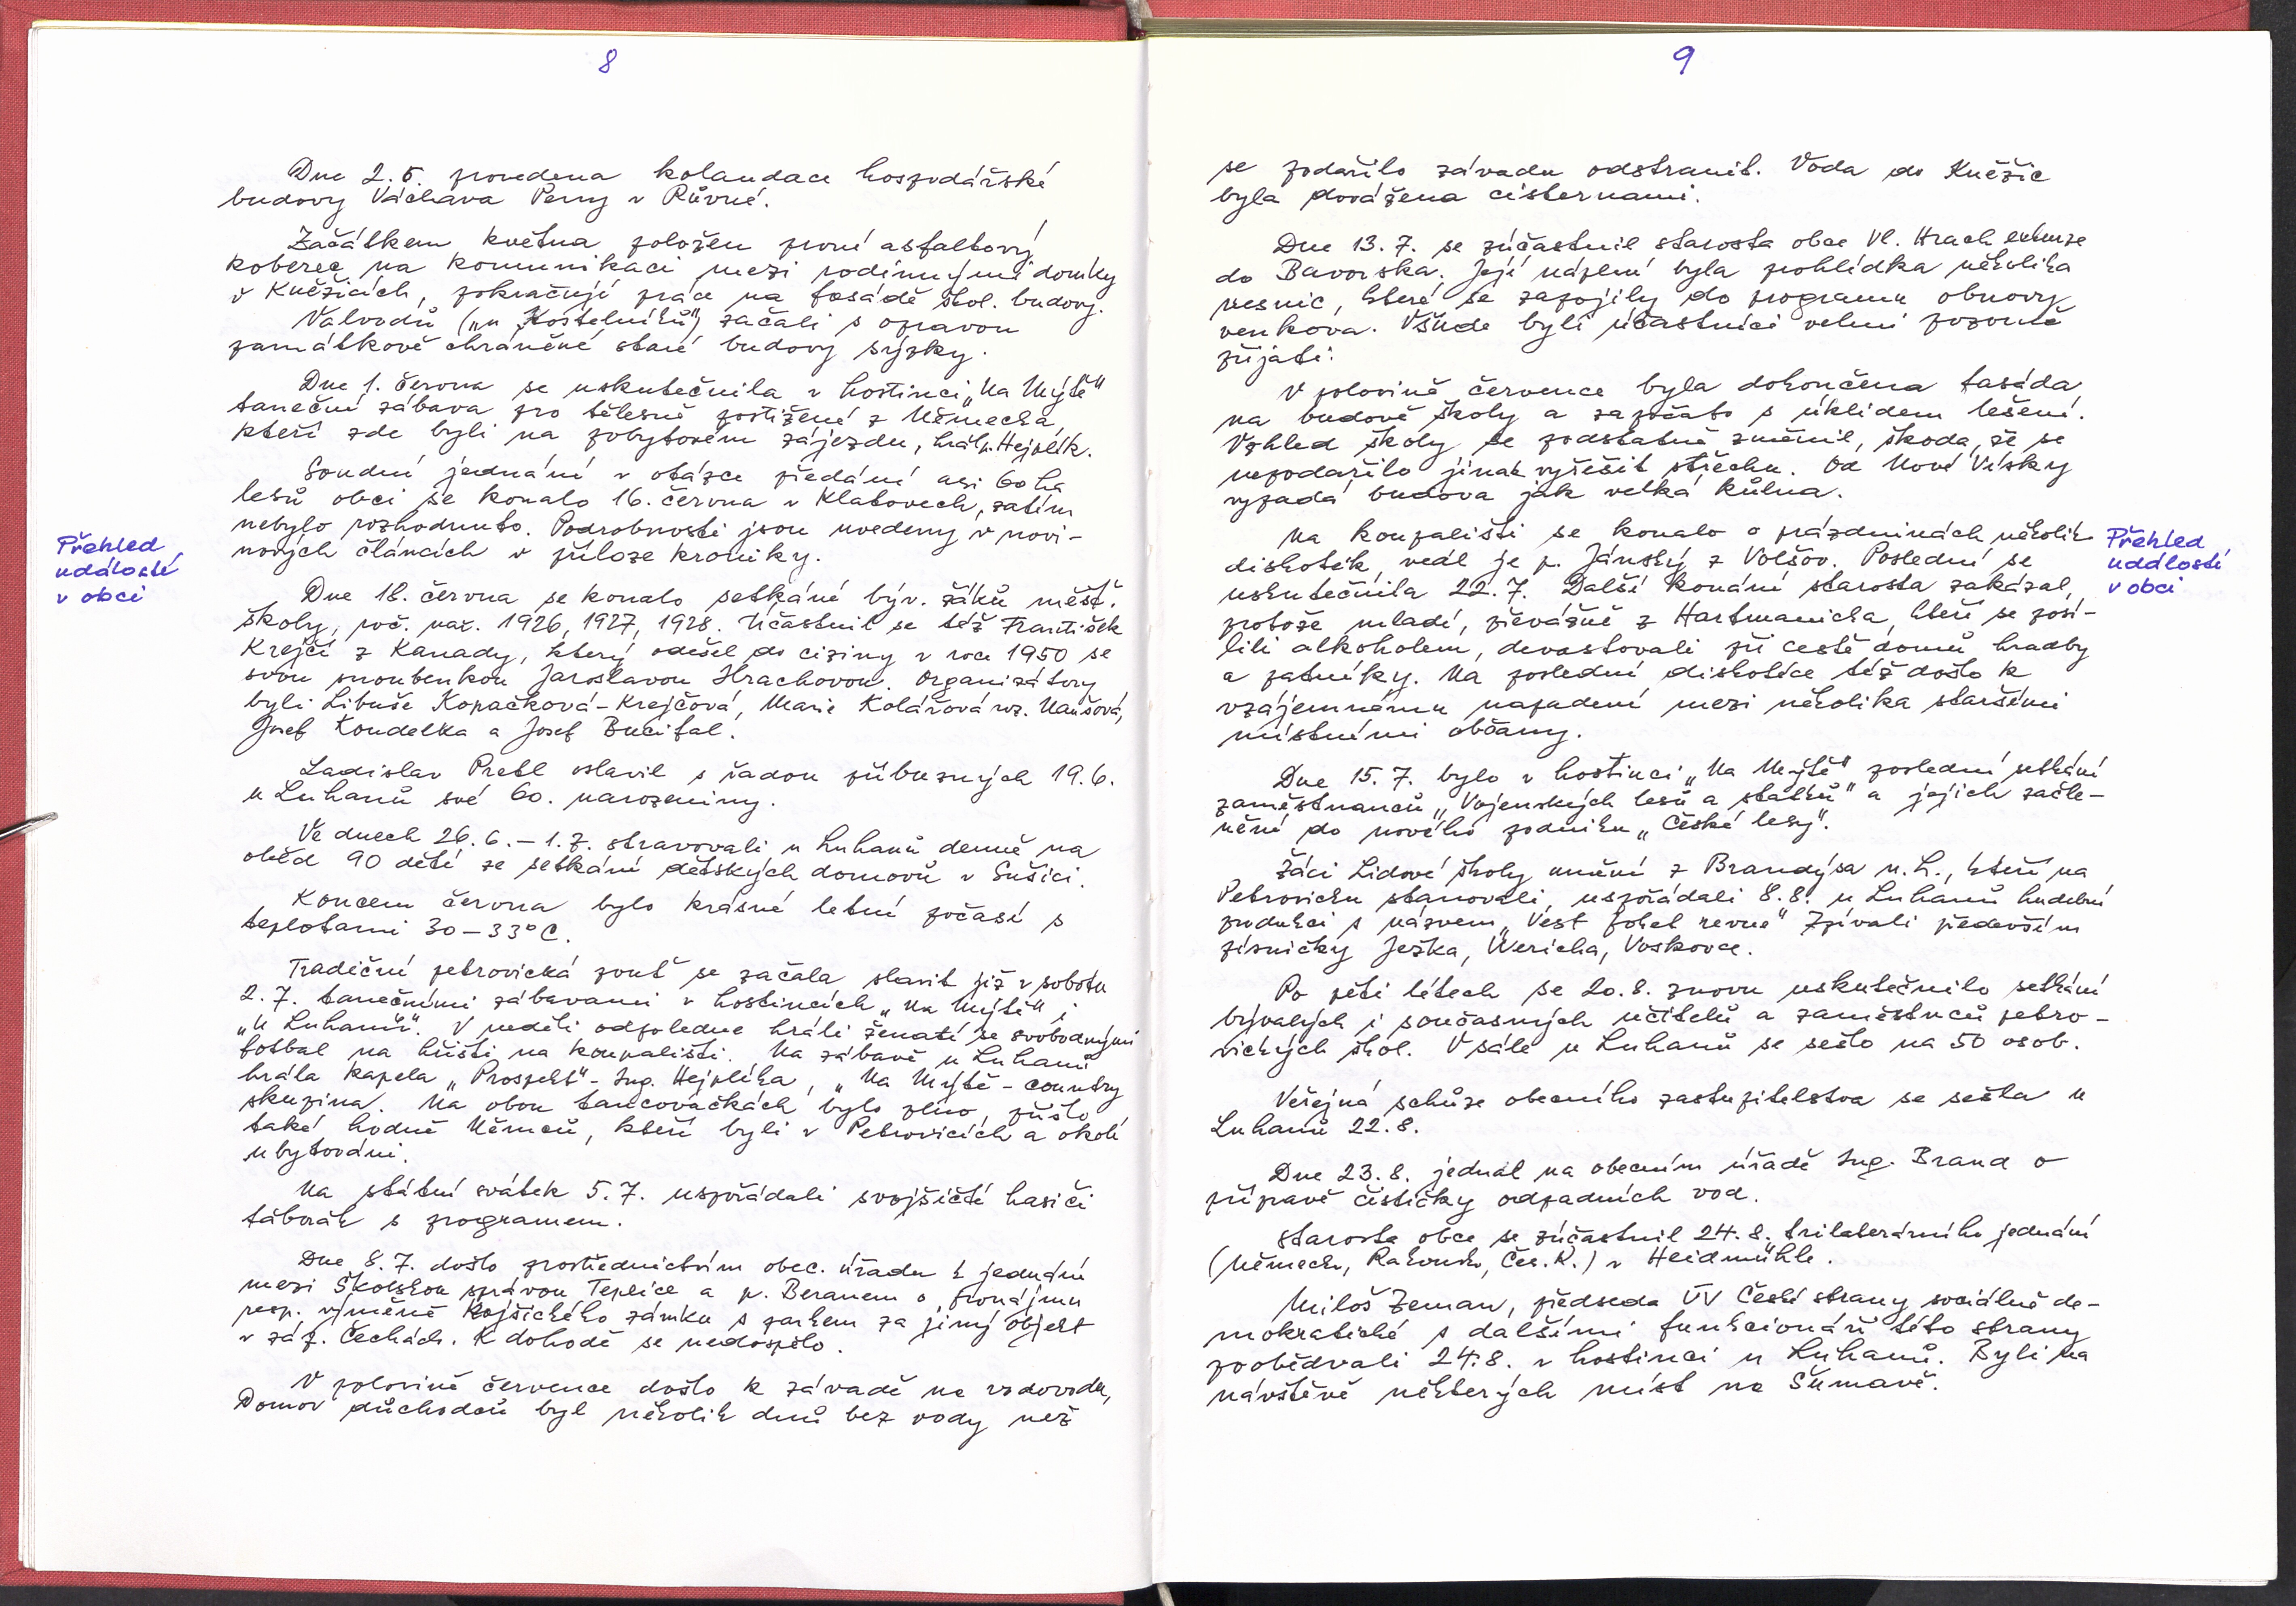 8
Dne 2.5. provedena kolaudace hospodářské
budovy Václava Perny v Růvné.
Začátkem května položen první asfaltový
koberec na komunikaci mezi rodinnými domky
v Kněžicích, pokračují práce na fasádě škol. budovy.
Valvodů („u Kostelníků") začali s opravou
památkově chráněné staré budovy sýpky.
Dne 1. června se uskutečnila v hostinci „Na Mýtě"
taneční zábava pro tělesně postižené z Německa,
kteří zde byli na pobytovém zájezdu, hrál p. Hejplík.
Soudní jednání v otázce předání asi 60 ha
lesů obci se konalo 16. června v Klatovech, zatím
nebylo rozhodnuto. Podrobnosti jsou uvedeny v novi-
nových článcích v příloze kroniky.
Přehled
událostí
v obci
Dne 18. června se konalo setkání býv. žáků měšť.
školy, roč. nar. 1926, 1927, 1928. Účastnil se též František
Krejčí z Kanady, který odešel do ciziny v roce 1950 se
svou snoubenkou Jaroslavou Hrachovou. Organizátory
byli Libuše Kopačková-Krejčová, Marie Kolářová roz. Naušová,
Josef Koudelka a Josef Bucifal.
Ladislav Prebl oslavil s řadou příbuzných 19.6.
u Luhanů své 60. narozeniny.
Ve dnech 26.6.–1.7. stravovali u Luhanů denně na
oběd 90 dětí ze setkání dětských domovů v Sušici.
Koncem června bylo krásné letní počasí s
teplotami 30–33°C.
Tradiční petrovická pouť se začala slavit již v sobotu
2.7. tanečními zábavami v hostincích „Na Mýtě" i
„U Luhanů". V neděli odpoledne hráli ženatí se svobodnými
fotbal na hřišti na koupališti. Na zábavě u Luhanů
hrála kapela „Prospekt" - Ing. Hejplíka, „Na Mýtě - country
skupina. Na obou tancovačkách bylo plno, přišlo
také hodně Němců, kteří byli v Petrovicích a okolí
ubytováni.
Na státní svátek 5.7. uspořádali svojšičtí hasiči
táborák s programem.
Dne 8.7. došlo prostřednictvím obec. úřadu k jednání
mezi Školskou správou Teplice a p. Beranem o pronájmu
resp. výměně Kojšického zámku s parkem za jiný objekt
v záp. Čechách. K dohodě se nedospělo.
V polovině července došlo k závadě na vodovodu,
Domov důchodců byl několik dnů bez vody než
9
se podařilo závadu odstranit. Voda do Kněžic
byla dovážena cisternami.
Dne 13.7. se zúčastnil starosta obce Vl. Hrach exkurze
do Bavorska. Její náplní byla prohlídka několika
vesnic, které se zapojily do programu obnovy
venkova. Všude byli účastníci velmi pozorně
přijati.
V polovině července byla dokončena fasáda
na budově školy a započato s úklidem lešení.
Vzhled školy se podstatně změnil, škoda, že se
nepodařilo jinak vyřešit střechu. Od Nové Vísky
vypadá budova jak velká kůlna.
Na koupališti se konalo o prázdninách několik
diskoték, vedl je p. Jánský z Volšov. Poslední se
uskutečnila 22.7. Další konání starosta zakázal,
protože mladí, převážně z Hartmanicka, kteří se posí-
lili alkoholem, devastovali při cestě domů hradby
a patníky. Na poslední diskotéce též došlo k
vzájemnému napadení mezi několika staršími
místními občany.
Přehled
událostí
v obci
Dne 15.7. bylo v hostinci „Na Mýtě" poslední setkání
zaměstnanců „Vojenských lesů a statků" a jejich začle-
nění do nového podniku „České lesy".
Žáci Lidové školy umění z Brandýsa n.L., kteří na
Petrovicku stanovali, uspořádali 8.8. u Luhanů hudební
produkci s názvem „Vest poket revue" Zpívali především
písničky Ježka, Wericha, Voskovce.
Po pěti létech se 20.8. znovu uskutečnilo setkání
bývalých i současných učitelů a zaměstnců petro-
vických škol. V sále u Luhanů se sešlo na 50 osob.
Veřejná schůze obecního zastupitelstva se sešla u
Luhanů 22.8.
Dne 23.8. jednal na obecním úřadě Ing. Brand o
přípravě čističky odpadních vod.
Starosta obce se zúčastnil 24.8. trilaterárního jednání
(Německo, Rakousko, Čes.R.) v Heidmühle.
Miloš Zeman, předseda ÚV České strany sociálně de-
mokratické s dalšími funkcionáři této strany
poobědvali 24.8. v hostinci u Luhanů. Byli na
návštěvě některých míst na Šumavě.